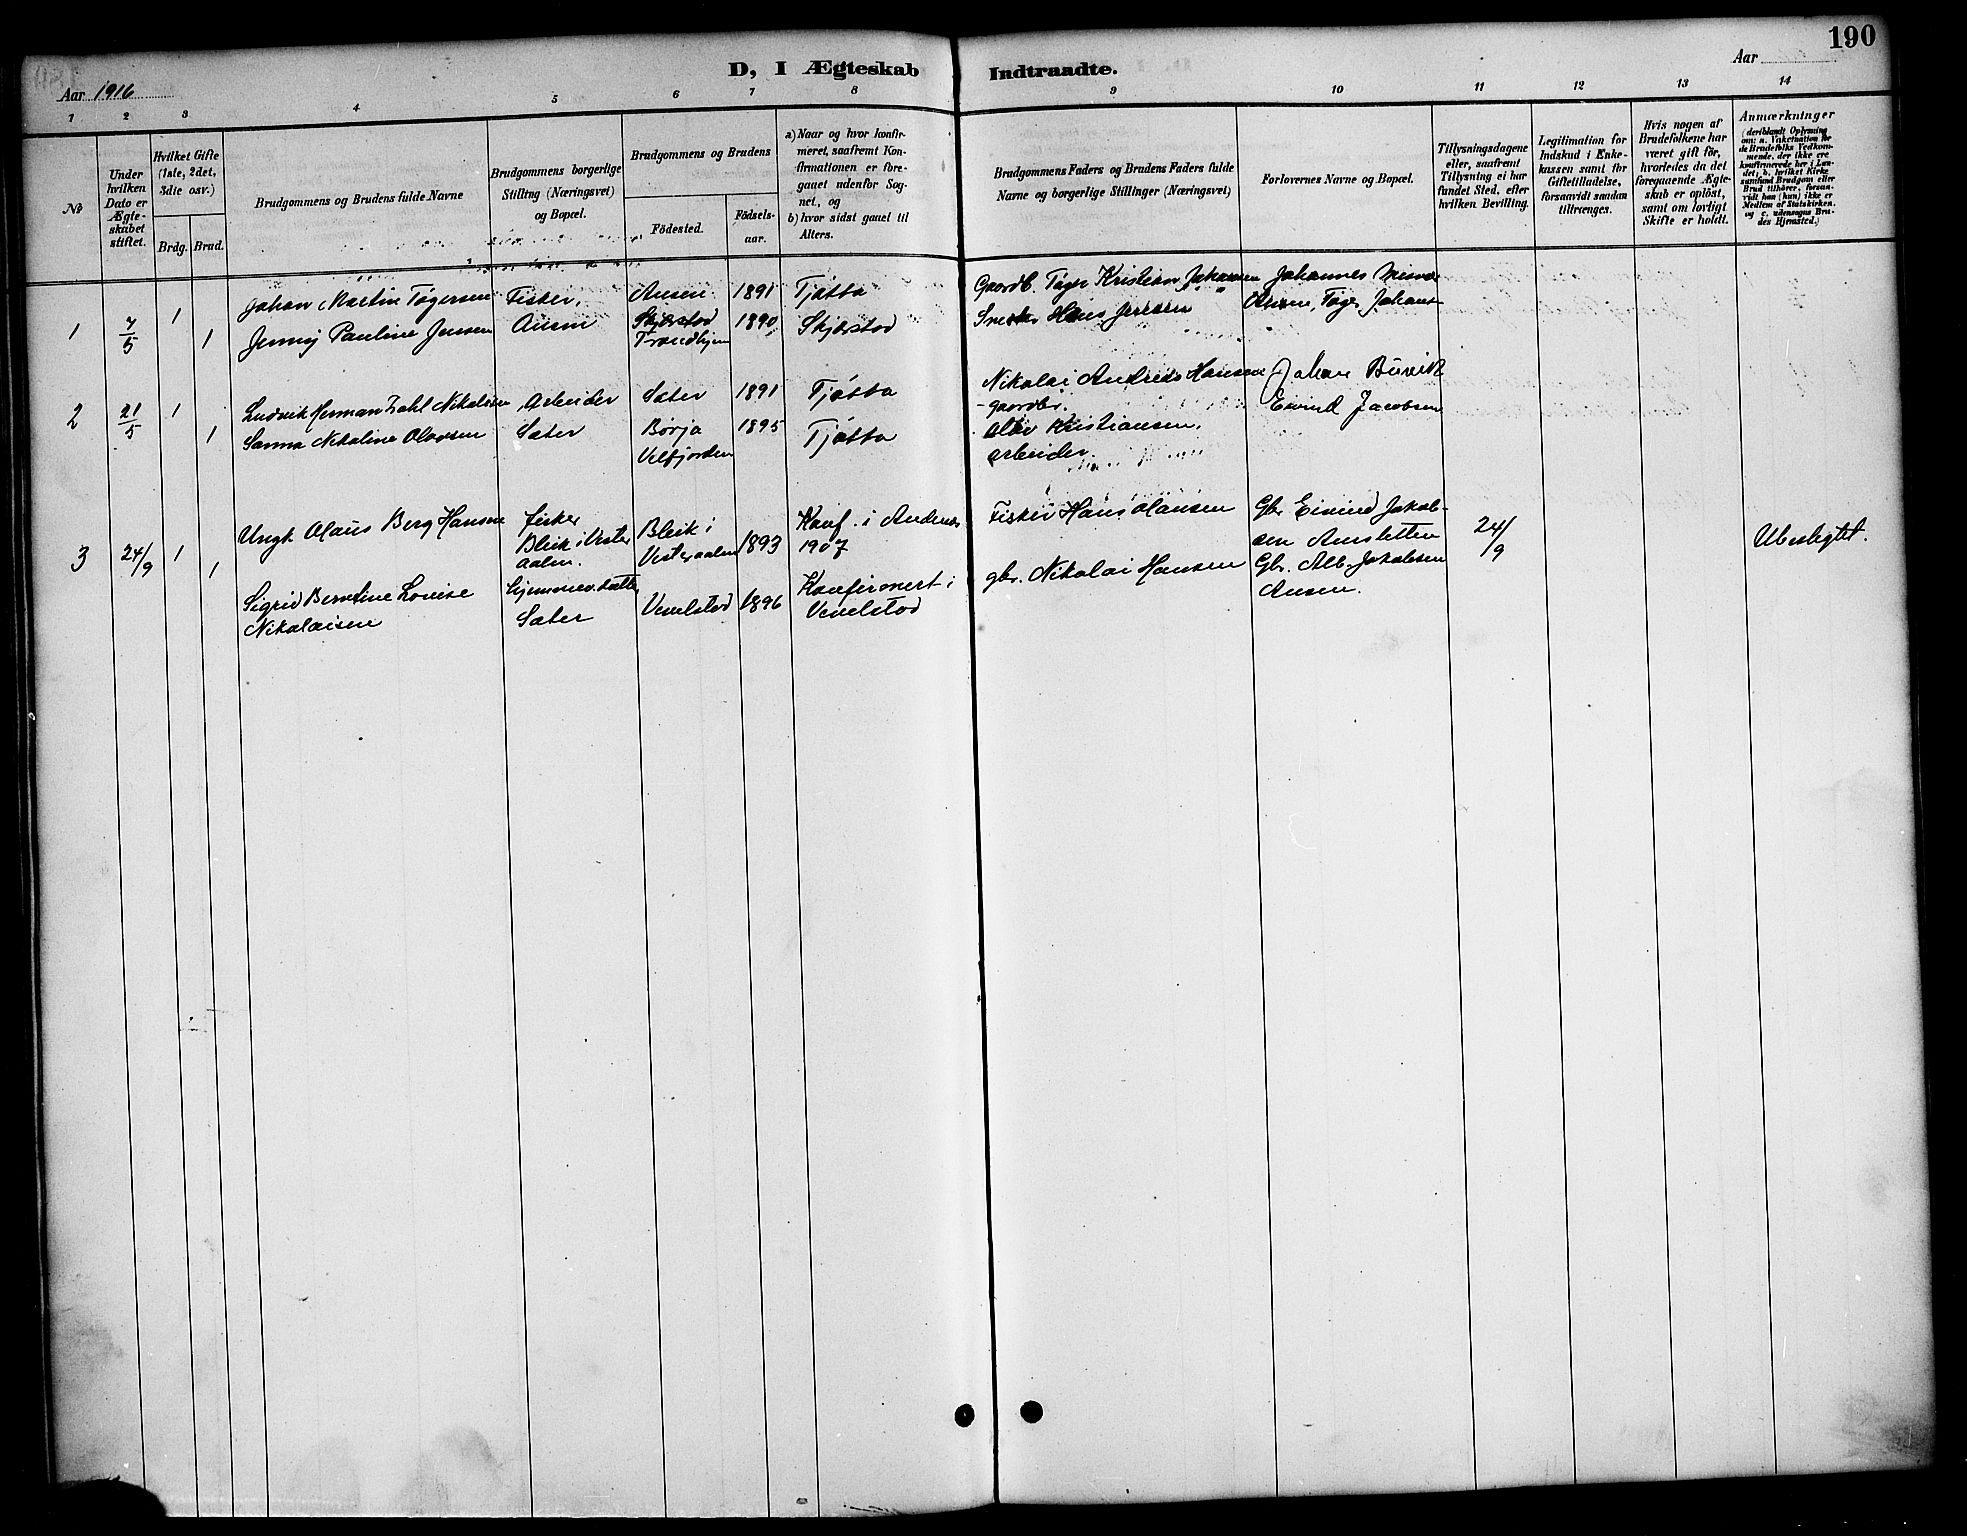 190
D, I Ægteskab Indtraadte.
Aar 1916
Aar
1 2 3 4 5 6 7 8 9 10 11 12 13 14
No
Under hvilken Dato er Ægteskabet stiftet.
Hvilket Gifte (1ste, 2det, 3die osv.)
Brdg. Brud.
Brudgommens og Brudens fulde Navne
Brudgommens borgerlige Stilling (Næringsvei) og Bopæl.
Brudgommens og Brudens
Födested.
Födselsaar.
a) Naar og hvor konfirmeret, saafremt Konfirmationen er foregaaet udenfor Sognet, og
b) hvor sidst gauet til Alters.
Brudgommens Faders og Brudens Faders fulde Navne og borgerlige Stillinger (Næringsvei)
Forlovernes Navne og Bopæl.
Tillysningsdagene eller, saafremt Tillysning ei har fundet Sted, efter hvilken Bevilling.
Legitimation for Indskud i Enkekassen samt för Giftetilladelse, forsaavidt saadan tiltrænges.
Hvis nogen af Brudefolkene har været gift för, hvorledes da det foregaaende Ægteskab er oplöst, samt om lovligt Skifte er holdt.
Anmærkninger
(deriblandt Oplysning om: a. Vakcination for de Brudefolks Vedkommende, der ikke ere konfirmerede her i Landet; b. hvilket Kirkesamfund Brudgom eller Brud tilhører, forsaavidt han (hun) ikke er Medlem af Statskirken, og c. udensogns Brudes Hjemsted.)
1 7/5 1 Johan Martin Tøgersen Fisker, Ausen 1891 Tjøtta Gaardb. Tøger Kristian Johansen Johannes
1 Jenny Pauline Jensen Ausen Skjerstad Trondhjem 1890 Skjerstad Snekker Hans Jensen
2 21/5 1 Ludvik Herman Dahl Nikolaisen Arbeider Sæter 1891 Tjøtta Nikolai Andreas Hansen gaardbr. Johan Burvik
1 Sanna Nikoline Olavsen Sæter Børja Velfjorden 1895 Tjøtta Olav Kristiansen, arbeider Eivind Jacobsen
3 24/9 1 Ungk. Olaus Berg Hansen fisker Bleik i Vesteraalen. Bleik i Vesteraalen 1893 Konf. i Andenes 1907 Fisker Hans Hansen Gbr. Eivind Jakobsen 24/9 Ubeslegtet.
1 Sigrid Berntine Lovise Nikolaisen Hjemmev. datter, Sæter Vevelstad 1896 Konfirmert i Vevelstad gbr. Nikolai Hansen Gbr. Alb. Jakobsen Ausen.